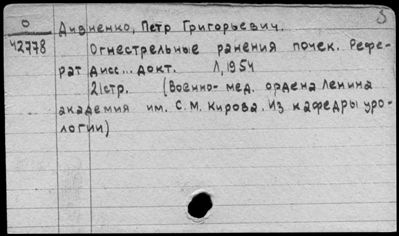 О Дивненко, Петр Григорьевич.
42778 Огнестрельные ранения почек. Рефе-
рат дисс... докт. Л, 1954
21стр. (Военно-мед. ордена Ленина
академия им. С.М. Кирова. Из кафедры уро-
логии)